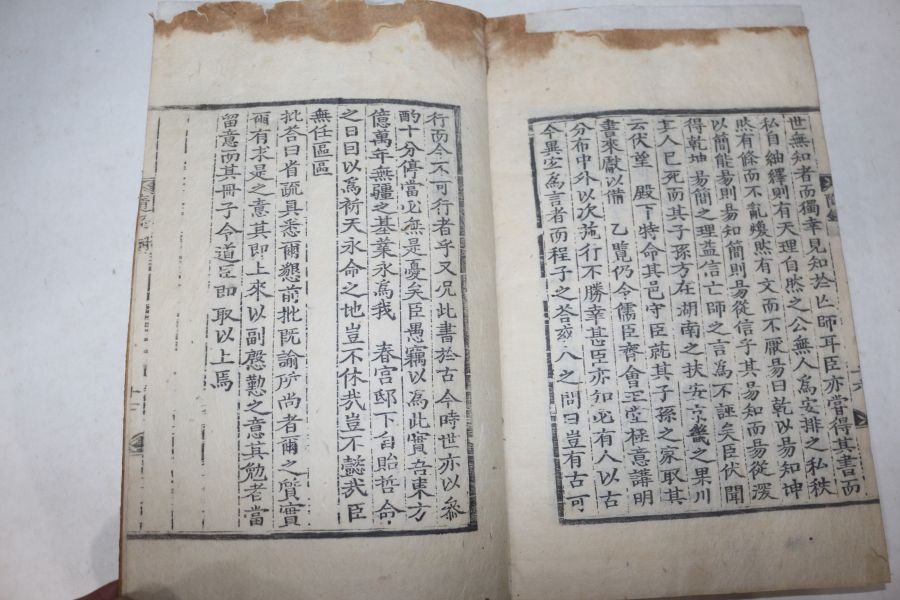 世無知者而獨幸見知於亡師耳臣亦嘗得其書而
私自紬繹則有天理自然之公無人為安排之私秩
然有條而不亂煥然有文而不厭易曰乾以易知坤
以簡能易則易知簡則易從信乎其易知而易從深
得乾坤易簡之理益信亡師之言為不誣矣臣伏聞
其人已死而其子孫方在湖南之扶安京畿之果川
云伏望 殿下特命其邑守臣就其子孫之家取其
書來獻以備 乙覽仍令儒臣齊會正堂極意講明
分布中外以次施行不勝幸甚臣亦知必有人以古
今異宜為言者而程子之答或人之問曰豈有古可
行而今不可行者乎又况此書於古今時世亦以參
酌十分停當必無是憂矣臣愚竊以為此實吾東方
億萬年無疆之基業永為我 春宮邸下自貽哲命
之日曰以為祈天永命之地豈不休哉豈不懿哉臣
無任區區
批答曰省疏具悉爾懇前批旣諭所尚者爾之質實
爾有求是之意其即上來以副慇懃之意其勉者當
留意而其冊子令道臣即取以上焉